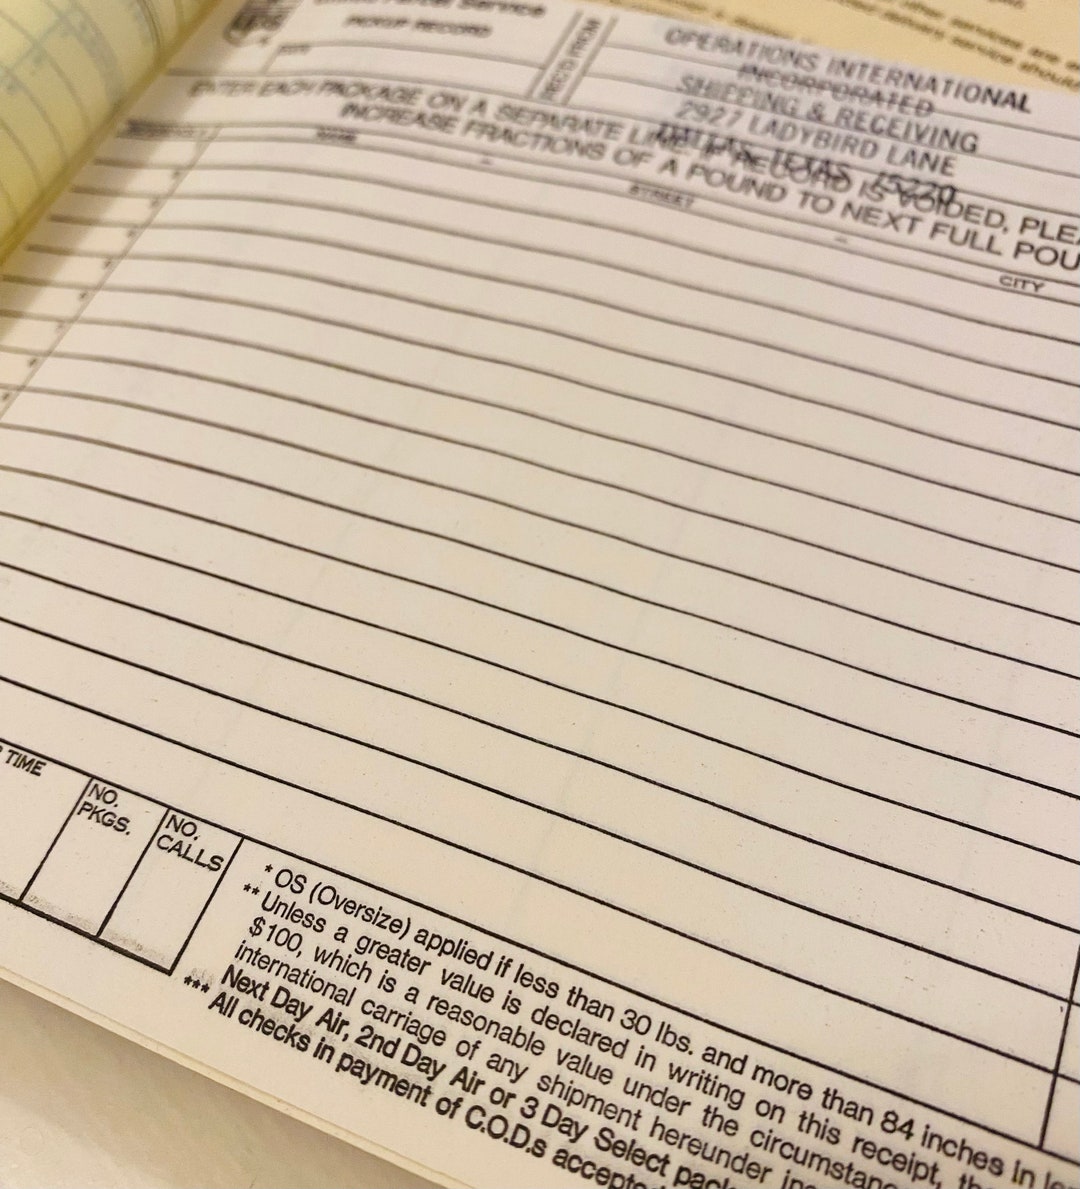 UPS
Parcel Service
PICKUP RECORD
DATE
REC'D FROM
OPERATIONS INTERNATIONAL
INCORPORATED
SHIPPING & RECEIVING
2927 LADYBIRD LANE
DALLAS, TEXAS 75220
other services are
delivery service should
ENTER EACH PACKAGE ON A SEPARATE LINE IF RECORD IS VOIDED, PLEA
INCREASE FRACTIONS OF A POUND TO NEXT FULL POU
NAME
STREET
CITY
TIME
NO.
PKGS.
NO.
CALLS
* OS (Oversize) applied if less than 30 lbs. and more than 84 inches in le
** Unless a greater value is declared in writing on this receipt, the
$100, which is a reasonable value under the circumstanc
international carriage of any shipment hereunder inc
Next Day Air, 2nd Day Air or 3 Day Select pack
*** All checks in payment of C.O.D.s accepted